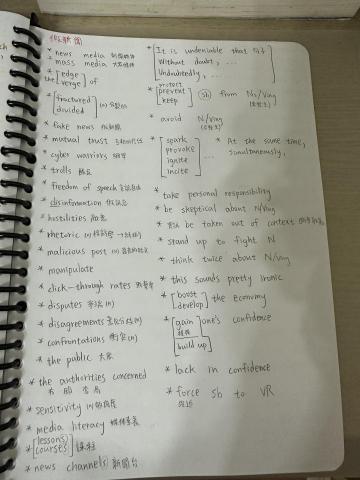 假新聞
* news media 新聞媒體
* mass media 大眾媒體
* the [edge verge] of
* [fractured divided] (a) 分裂的
* fake news 假新聞
* mutual trust
* cyber warriors 網軍
* trolls 酸民
* freedom of speech 言論自由
* disinformation 假訊息
* hostilities 敵意
* rhetoric (n)
* malicious post (n)
* manipulate
* click-through rates 點擊率
* disputes 爭論 (n)
* disagreements 意見分歧 (n)
* confrontations 衝突 (n)
* the public 大眾
* the authorities concerned
有關當局
* sensitivity (n) 敏感度
* media literacy 媒體素養
* [lessons courses] 課程
* news channels 新聞台
* [It is undeniable that 句子
Without doubt, ...
Undoubtedly, ...
* [protect prevent keep] sb from N/Ving
* avoid N/Ving
* [spark provoke ignite incite] ... * At the same time,
Simultaneously,
* take personal responsibility
* be skeptical about N/Ving
* be taken out of context
* stand up to fight N
* think twice about N/Ving
* this sounds pretty ironic
* [boost develop] the economy
* [gain build up] one's confidence
* lack in confidence
* force sb to VR
強迫